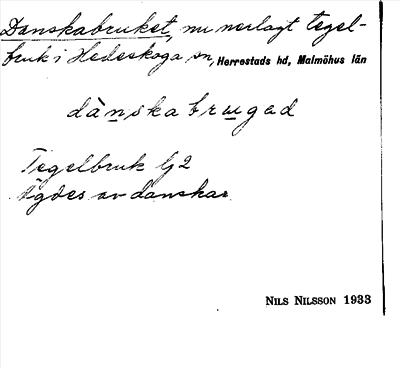 Danskabruket, nu nerlagt tegel-
bruk i Hedeskoga sn, Herrestads hd, Malmöhus län
dànskabrugad
Tegelbruk lj 2
Ägdes av danskar.
NILS NILSSON 1933